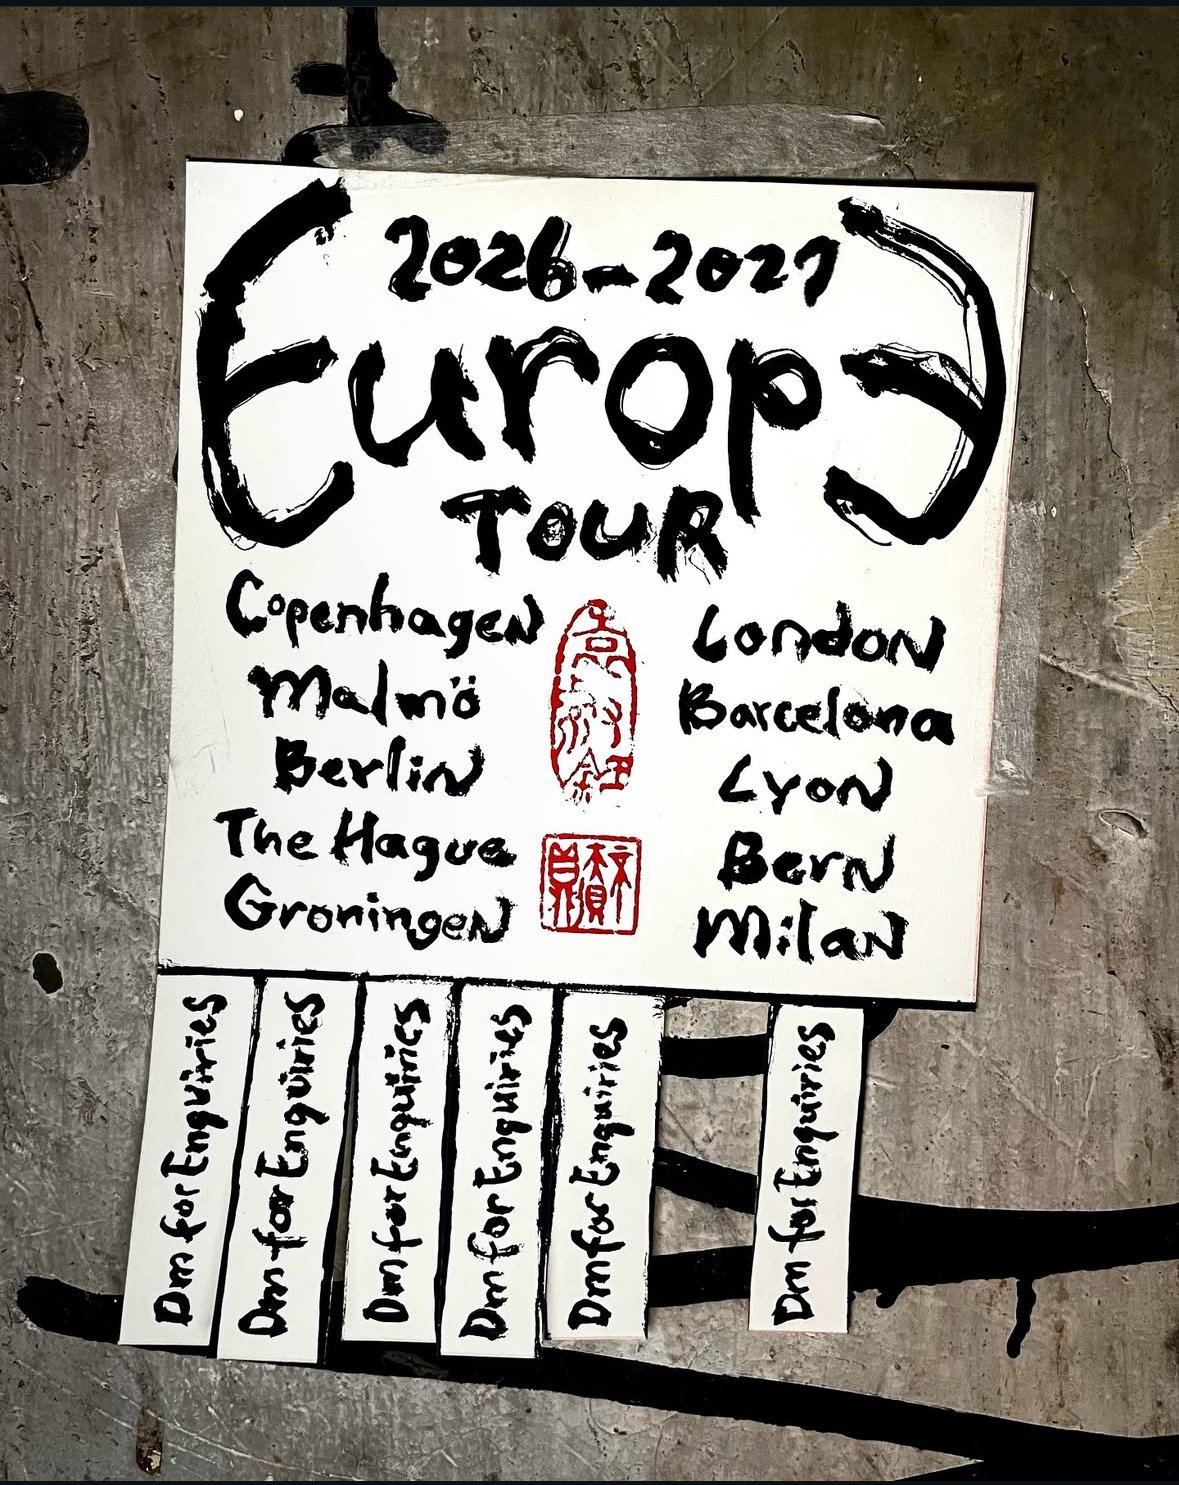 2026-2027
Europe
TOUR
Copenhagen
Malmö
Berlin
The Hague
Groningen
London
Barcelona
Lyon
Bern
Milan
Dm for Enquiries
Dm for Enquiries
Dm for Enquiries
Dm for Enquiries
Dm for Enquiries
Dm for Enquiries